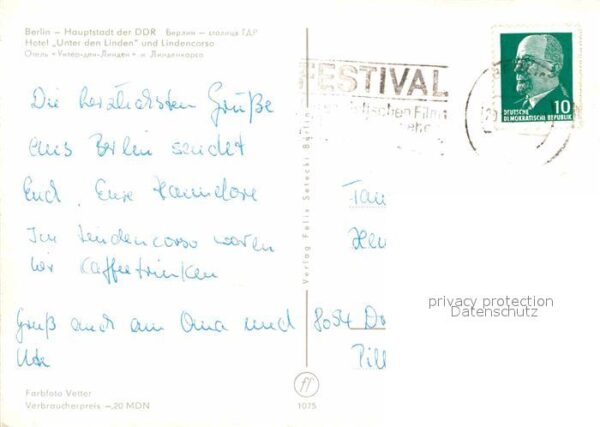 Berlin – Hauptstadt der DDR Берлин – столица ГДР
Hotel „Unter den Linden" und Lindencorso
Отель «Унтер-ден-Линден» и Линденкорсо
FESTIVAL
Filme
DEUTSCHE
DEMOKRATISCHE REPUBLIK
10
Die herzlichsten Grüße
aus Berlin sendet
Euch, Eure Hannelore
Im Lindencorso waren
wir Kaffeetrinken
Gruß auch an Oma und
Ute
Fam
8054 Do
Verlag Felix Setecki Berlin
privacy protection
Datenschutz
Farbfoto Vetter
Verbraucherpreis –,20 MDN
1075